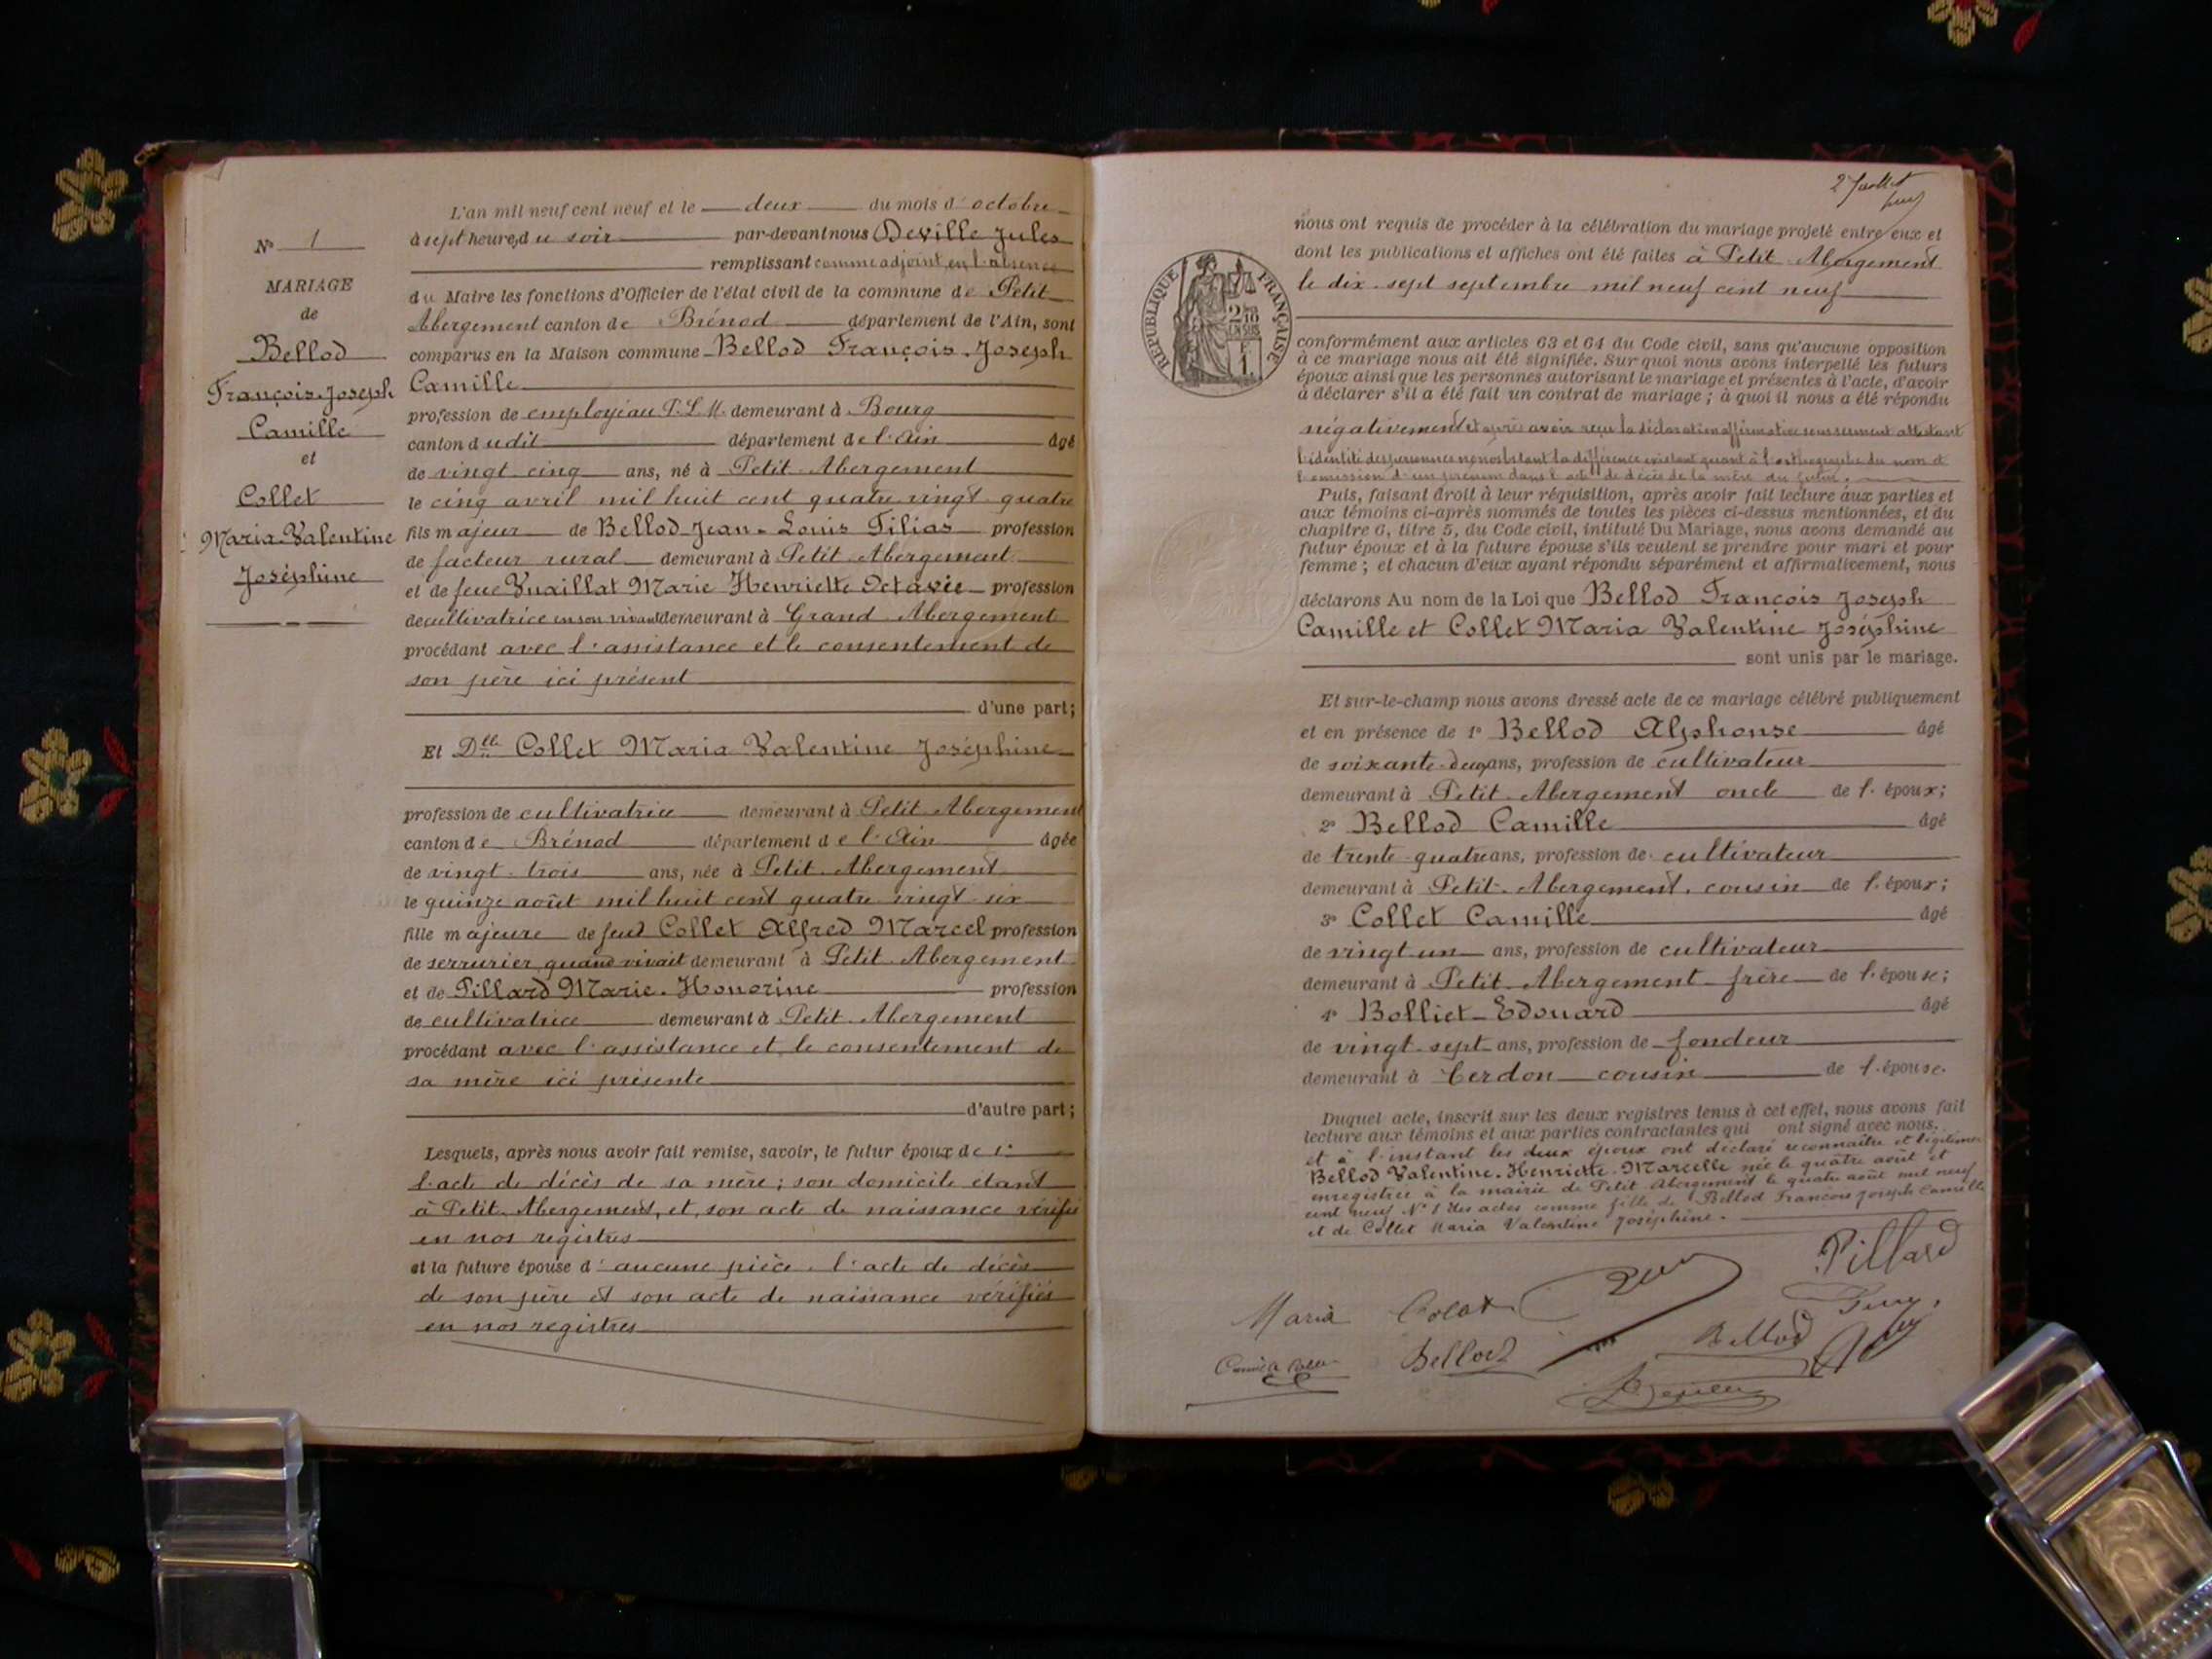 L'an mil neuf cent neuf et le deux du mois d'octobre
N° 1
à sept heures du soir par-devant nous Deville Jules
remplissant comme adjoint, en l'absence
MARIAGE
du Maire les fonctions d'Officier de l'état civil de la commune de Petit
de
Abergement canton de Brénod département de l'Ain, sont
Bellod
comparus en la Maison commune Bellod François Joseph
François Joseph
Camille
Camille
profession de employé au P.L.M. demeurant à Bourg
et
canton dudit département de l'Ain âgé
de vingt cinq ans, né à Petit Abergement
Collet
le cinq avril mil huit cent quatre vingt quatre
Maria Valentine
fils majeur de Bellod Jean-Louis Filias profession
de facteur rural demeurant à Petit Abergement
Joséphine
et de feue Vuaillat Marie Henriette Octavie profession
de cultivatrice en son vivant demeurant à Grand Abergement
procédant avec l'assistance et le consentement de
son père ici présent
d'une part;
Et Dlle Collet Maria Valentine Joséphine
profession de cultivatrice demeurant à Petit Abergement
canton de Brénod département de l'Ain âgée
de vingt trois ans, née à Petit Abergement
le quinze août mil huit cent quatre vingt six
fille majeure de feu Collet Alfred Marcel profession
de serrurier quand vivait demeurant à Petit Abergement
et de Pillard Marie Honorine profession
de cultivatrice demeurant à Petit Abergement
procédant avec l'assistance et le consentement de
sa mère ici présente
d'autre part;
Lesquels, après nous avoir fait remise, savoir, le futur époux de 1°
l'acte de décès de sa mère; son domicile étant
à Petit Abergement, et son acte de naissance vérifié
en nos registres
et la future épouse d'aucune pièce. l'acte de décès
de son père et son acte de naissance vérifiés
en nos registres
2 Juillet
nous ont requis de procéder à la célébration du mariage projeté entre eux et
dont les publications et affiches ont été faites à Petit Abergement
le dix-sept septembre mil neuf cent neuf
RÉPUBLIQUE FRANÇAISE
2/10
EN SUS
1F
conformément aux articles 63 et 64 du Code civil, sans qu'aucune opposition
à ce mariage nous ait été signifiée. Sur quoi nous avons interpellé les futurs
époux ainsi que les personnes autorisant le mariage et présentes à l'acte, d'avoir
à déclarer s'il a été fait un contrat de mariage; à quoi il nous a été répondu
négativement et après avoir reçu la déclaration affirmative sous serment attestant
l'identité des personnes nonobstant la différence existant quant à l'orthographe du nom et
l'omission d'un prénom dans l'acte de décès de la mère du futur.
Puis, faisant droit à leur réquisition, après avoir fait lecture aux parties et
aux témoins ci-après nommés de toutes les pièces ci-dessus mentionnées, et du
chapitre 6, titre 5, du Code civil, intitulé Du Mariage, nous avons demandé au
futur époux et à la future épouse s'ils veulent se prendre pour mari et pour
femme; et chacun d'eux ayant répondu séparément et affirmativement, nous
déclarons Au nom de la Loi que Bellod François Joseph
Camille et Collet Maria Valentine Joséphine
sont unis par le mariage.
Et sur-le-champ nous avons dressé acte de ce mariage célébré publiquement
et en présence de 1° Bellod Alphonse âgé
de soixante-deux ans, profession de cultivateur
demeurant à Petit Abergement oncle de l'époux;
2° Bellod Camille âgé
de trente-quatre ans, profession de cultivateur
demeurant à Petit Abergement, cousin de l'époux;
3° Collet Camille âgé
de vingt un ans, profession de cultivateur
demeurant à Petit Abergement frère de l'épouse;
4° Bolliet Edouard âgé
de vingt sept ans, profession de fondeur
demeurant à Cerdon cousin de l'épouse.
Duquel acte, inscrit sur les deux registres tenus à cet effet, nous avons fait
lecture aux témoins et aux parties contractantes qui ont signé avec nous.
et à l'instant les deux époux ont déclaré reconnaître et légitimer
Bellod Valentine-Henriette-Marcelle née le quatre août et
enregistrée à la mairie de Petit Abergement le quatre août mil neuf
cent neuf N° 8 des actes comme fille de Bellod François Joseph Camille
et de Collet Maria Valentine Joséphine.
Pillard
Maria Colet
Bellod
Bellod